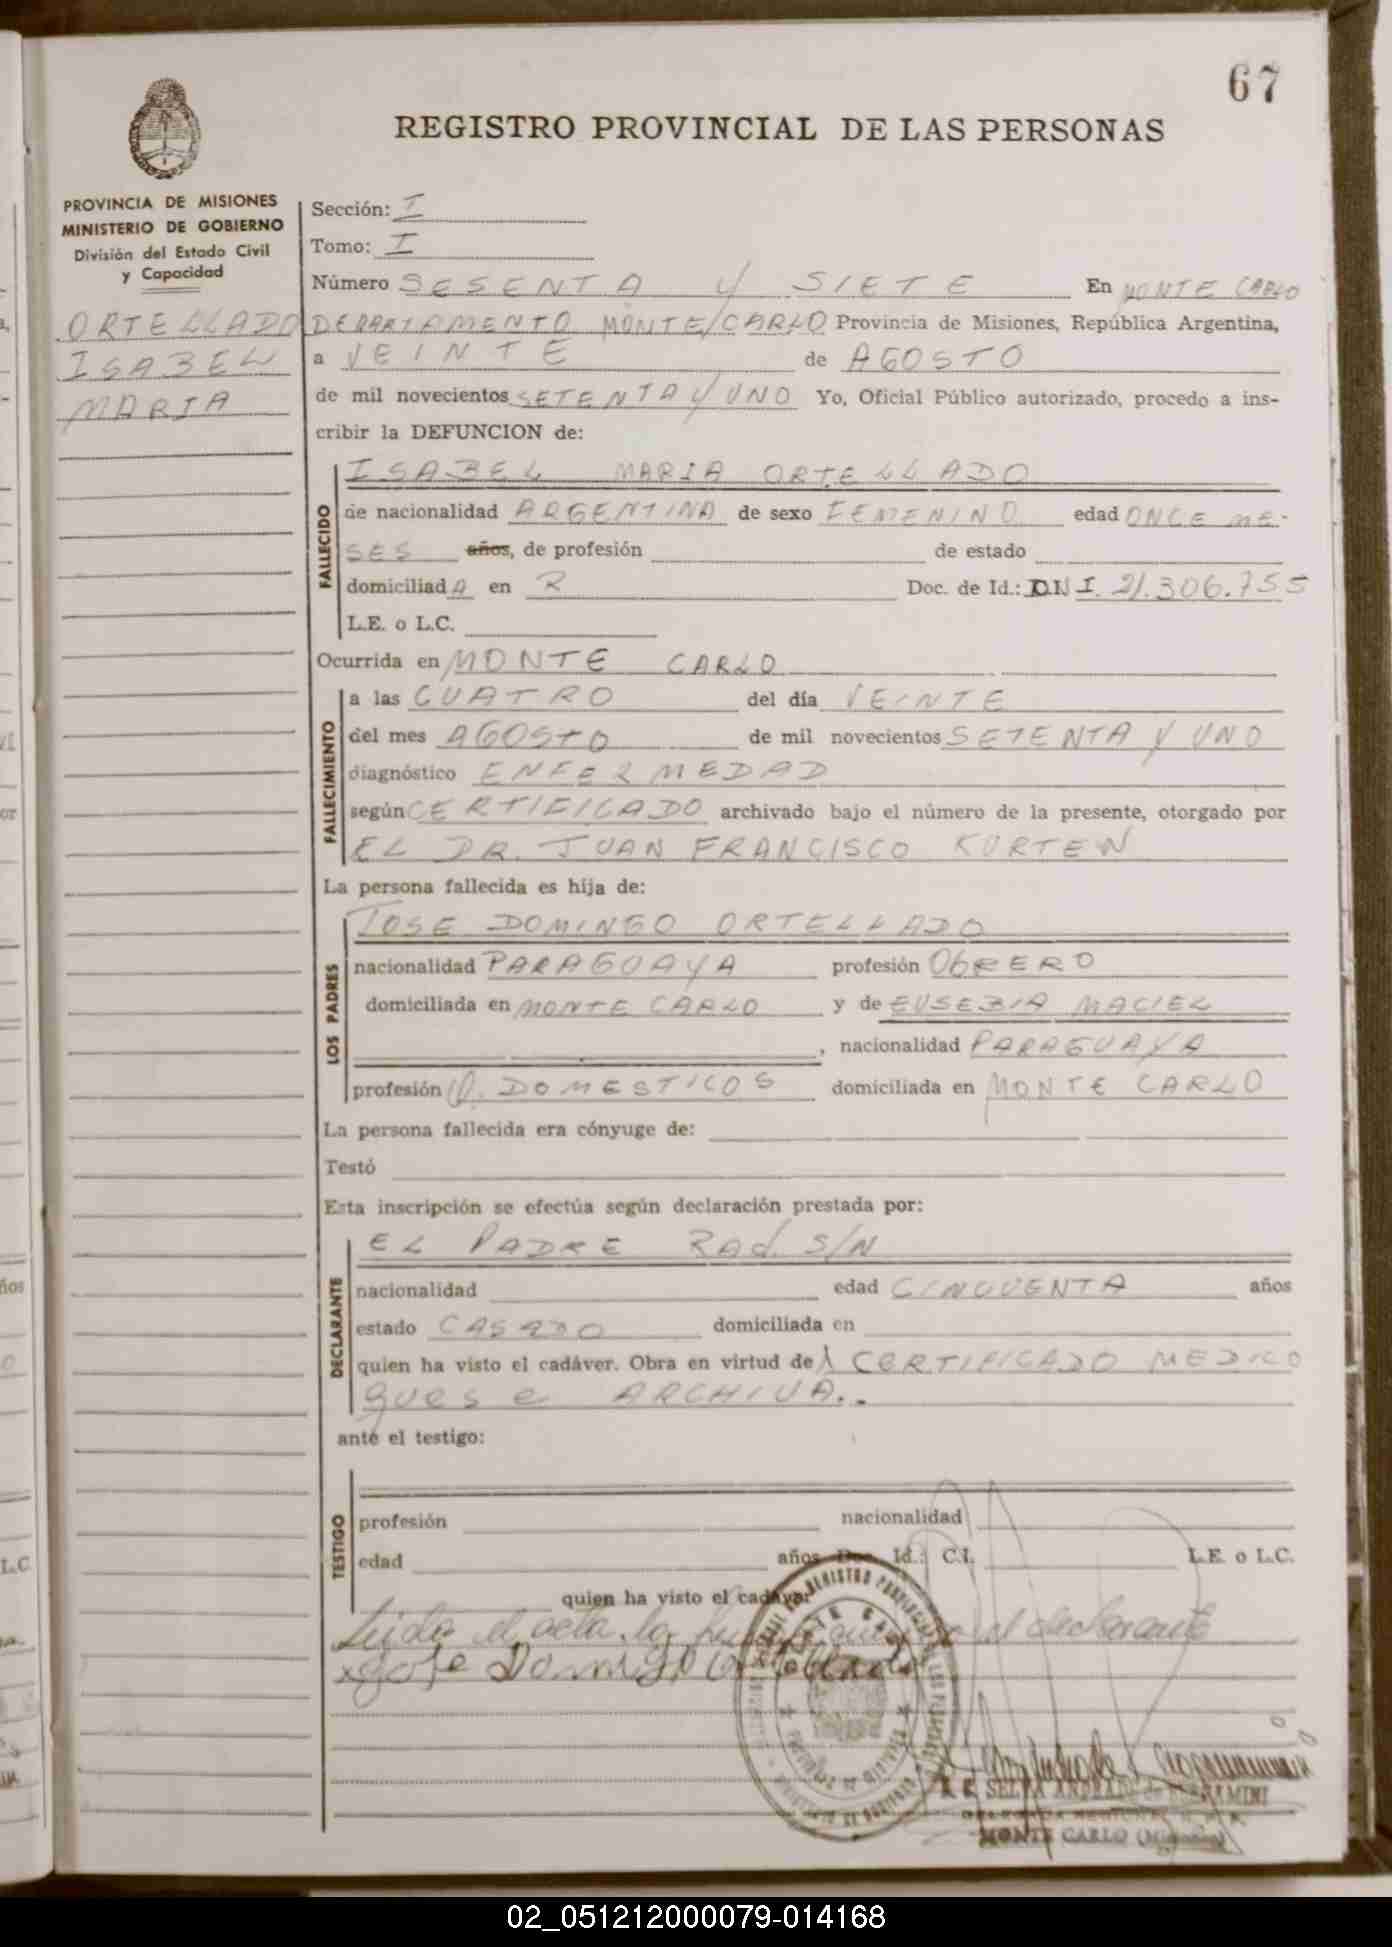 67
REGISTRO PROVINCIAL DE LAS PERSONAS
PROVINCIA DE MISIONES
MINISTERIO DE GOBIERNO
División del Estado Civil
y Capacidad
ORTELLADO
ISABEL
MARIA
Sección: I
Tomo: I
Número SESENTA Y SIETE En MONTE CARLO
DEPARTAMENTO MONTE CARLO Provincia de Misiones, República Argentina,
a VEINTE de AGOSTO
de mil novecientos SETENTA Y UNO Yo, Oficial Público autorizado, procedo a ins-
cribir la DEFUNCION de:
FALLECIDO
ISABEL MARIA ORTELLADO
de nacionalidad ARGENTINA de sexo FEMENINO edad ONCE ME-
SES años, de profesión de estado
domiciliada en R Doc. de Id.: D.N.I. 21.306.755
L.E. o L.C.
Ocurrida en MONTE CARLO
FALLECIMIENTO
a las CUATRO del día VEINTE
del mes AGOSTO de mil novecientos SETENTA Y UNO
diagnóstico ENFERMEDAD
según CERTIFICADO archivado bajo el número de la presente, otorgado por
EL DR. JUAN FRANCISCO KURTEN
La persona fallecida es hija de:
LOS PADRES
JOSE DOMINGO ORTELLADO
nacionalidad PARAGUAYA profesión OBRERO
domiciliada en MONTE CARLO y de EUSEBIA MACIEL
, nacionalidad PARAGUAYA
profesión Q. DOMESTICOS domiciliada en MONTE CARLO
La persona fallecida era cónyuge de:
Testó
Esta inscripción se efectúa según declaración prestada por:
DECLARANTE
EL PADRE Rad. S/N
nacionalidad edad CINCUENTA años
estado CASADO domiciliada en
quien ha visto el cadáver. Obra en virtud del CERTIFICADO MEDICO
que se ARCHIVA..
ante el testigo:
TESTIGO
profesión nacionalidad
edad años Doc. Id.: C.I. L.E. o L.C.
quien ha visto el cadáver
Leída el acta, la el declarante
x José Domingo Ortellado
SELVA ANDRADE de
MONTE CARLO (Misiones)
02_051212000079-014168